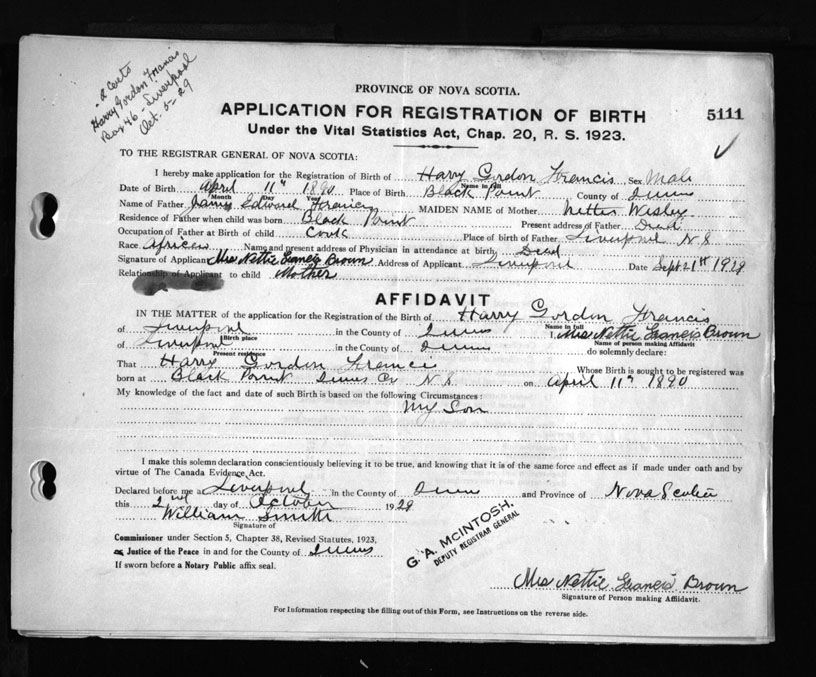 2 Certs
Harry Gordon Francis
Box 46 - Liverpool
Oct. 5 - 29
PROVINCE OF NOVA SCOTIA.
APPLICATION FOR REGISTRATION OF BIRTH 5111
Under the Vital Statistics Act, Chap. 20, R. S. 1923.
TO THE REGISTRAR GENERAL OF NOVA SCOTIA:
I hereby make application for the Registration of Birth of Harry Gordon Francis Sex Male
Name in full
Date of Birth April 11th 1890 Place of Birth Black Point County of Queens
Month Day Year
Name of Father James Edward Francis MAIDEN NAME of Mother Nettie Wesley
Residence of Father when child was born Black Point Present address of Father Dead
Occupation of Father at Birth of child Cook Place of birth of Father Liverpool N S
Race African Name and present address of Physician in attendance at birth Dead
Signature of Applicant Mrs Nettie Francis Brown Address of Applicant Liverpool Date Sept 21st 1929
Relationship of Applicant to child Mother
AFFIDAVIT
IN THE MATTER of the application for the Registration of the Birth of Harry Gordon Francis
Name in full
of Liverpool in the County of Queens Mrs Nettie Francis Brown
Birth place Name of person making Affidavit
of Liverpool in the County of Queens do solemnly declare:
Present residence
That Harry Gordon Francis Whose Birth is sought to be registered was
born at Black Point Queens Co N S on April 11th 1890
My knowledge of the fact and date of such Birth is based on the following Circumstances:
My Son
I make this solemn declaration conscientiously believing it to be true, and knowing that it is of the same force and effect as if made under oath and by
virtue of The Canada Evidence Act.
Declared before me at Liverpool in the County of Queens and Province of Nova Scotia
this 2nd day of October 1929
William Smith
Signature of
Commissioner under Section 5, Chapter 38, Revised Statutes, 1923,
or Justice of the Peace in and for the County of Queens
If sworn before a Notary Public affix seal.
G. A. McINTOSH,
DEPUTY REGISTRAR GENERAL
Mrs Nettie Francis Brown
Signature of Person making Affidavit.
For Information respecting the filling out of this Form, see Instructions on the reverse side.